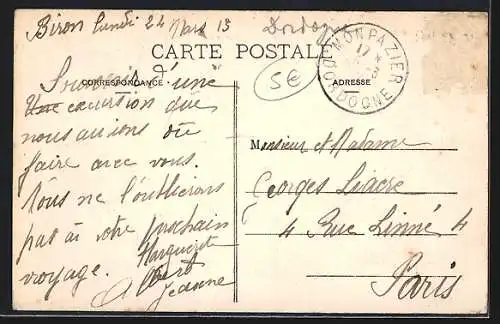 Biron lundi 24 Mars 13
Dordogne
CARTE POSTALE
5€
MONPAZIER
DORDOGNE
17
CORRESPONDANCE
ADRESSE
Souvenir d'une
Une excursion que
nous aurions dû
faire avec vous.
Nous ne l'oublierons
pas à votre prochain
voyage.
Marguerite
Albert
Jeanne
Monsieur et Madame
Georges Liacre
4 Rue Linné 4
Paris